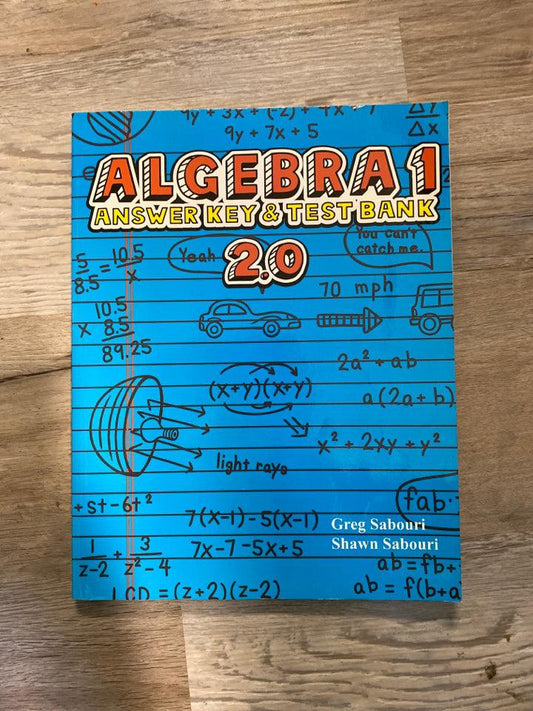 9y + 3x + (-2) + 4x - 7
9y + 7x + 5
Δy
Δx
ALGEBRA 1
ANSWER KEY & TEST BANK
2.0
Yeah
You can't
catch me.
5/8.5 = 10.5/x
10.5
x 8.5
89.25
70 mph
2a² + ab
a(2a + b)
(x+y)(x+y)
x² + 2xy + y²
light rays
+st-6t²
fab
7(x-1)-5(x-1)
7x-7-5x+5
Greg Sabouri
Shawn Sabouri
1/z-2 + 3/z²-4
LCD = (z+2)(z-2)
ab = fb+
ab = f(b+a